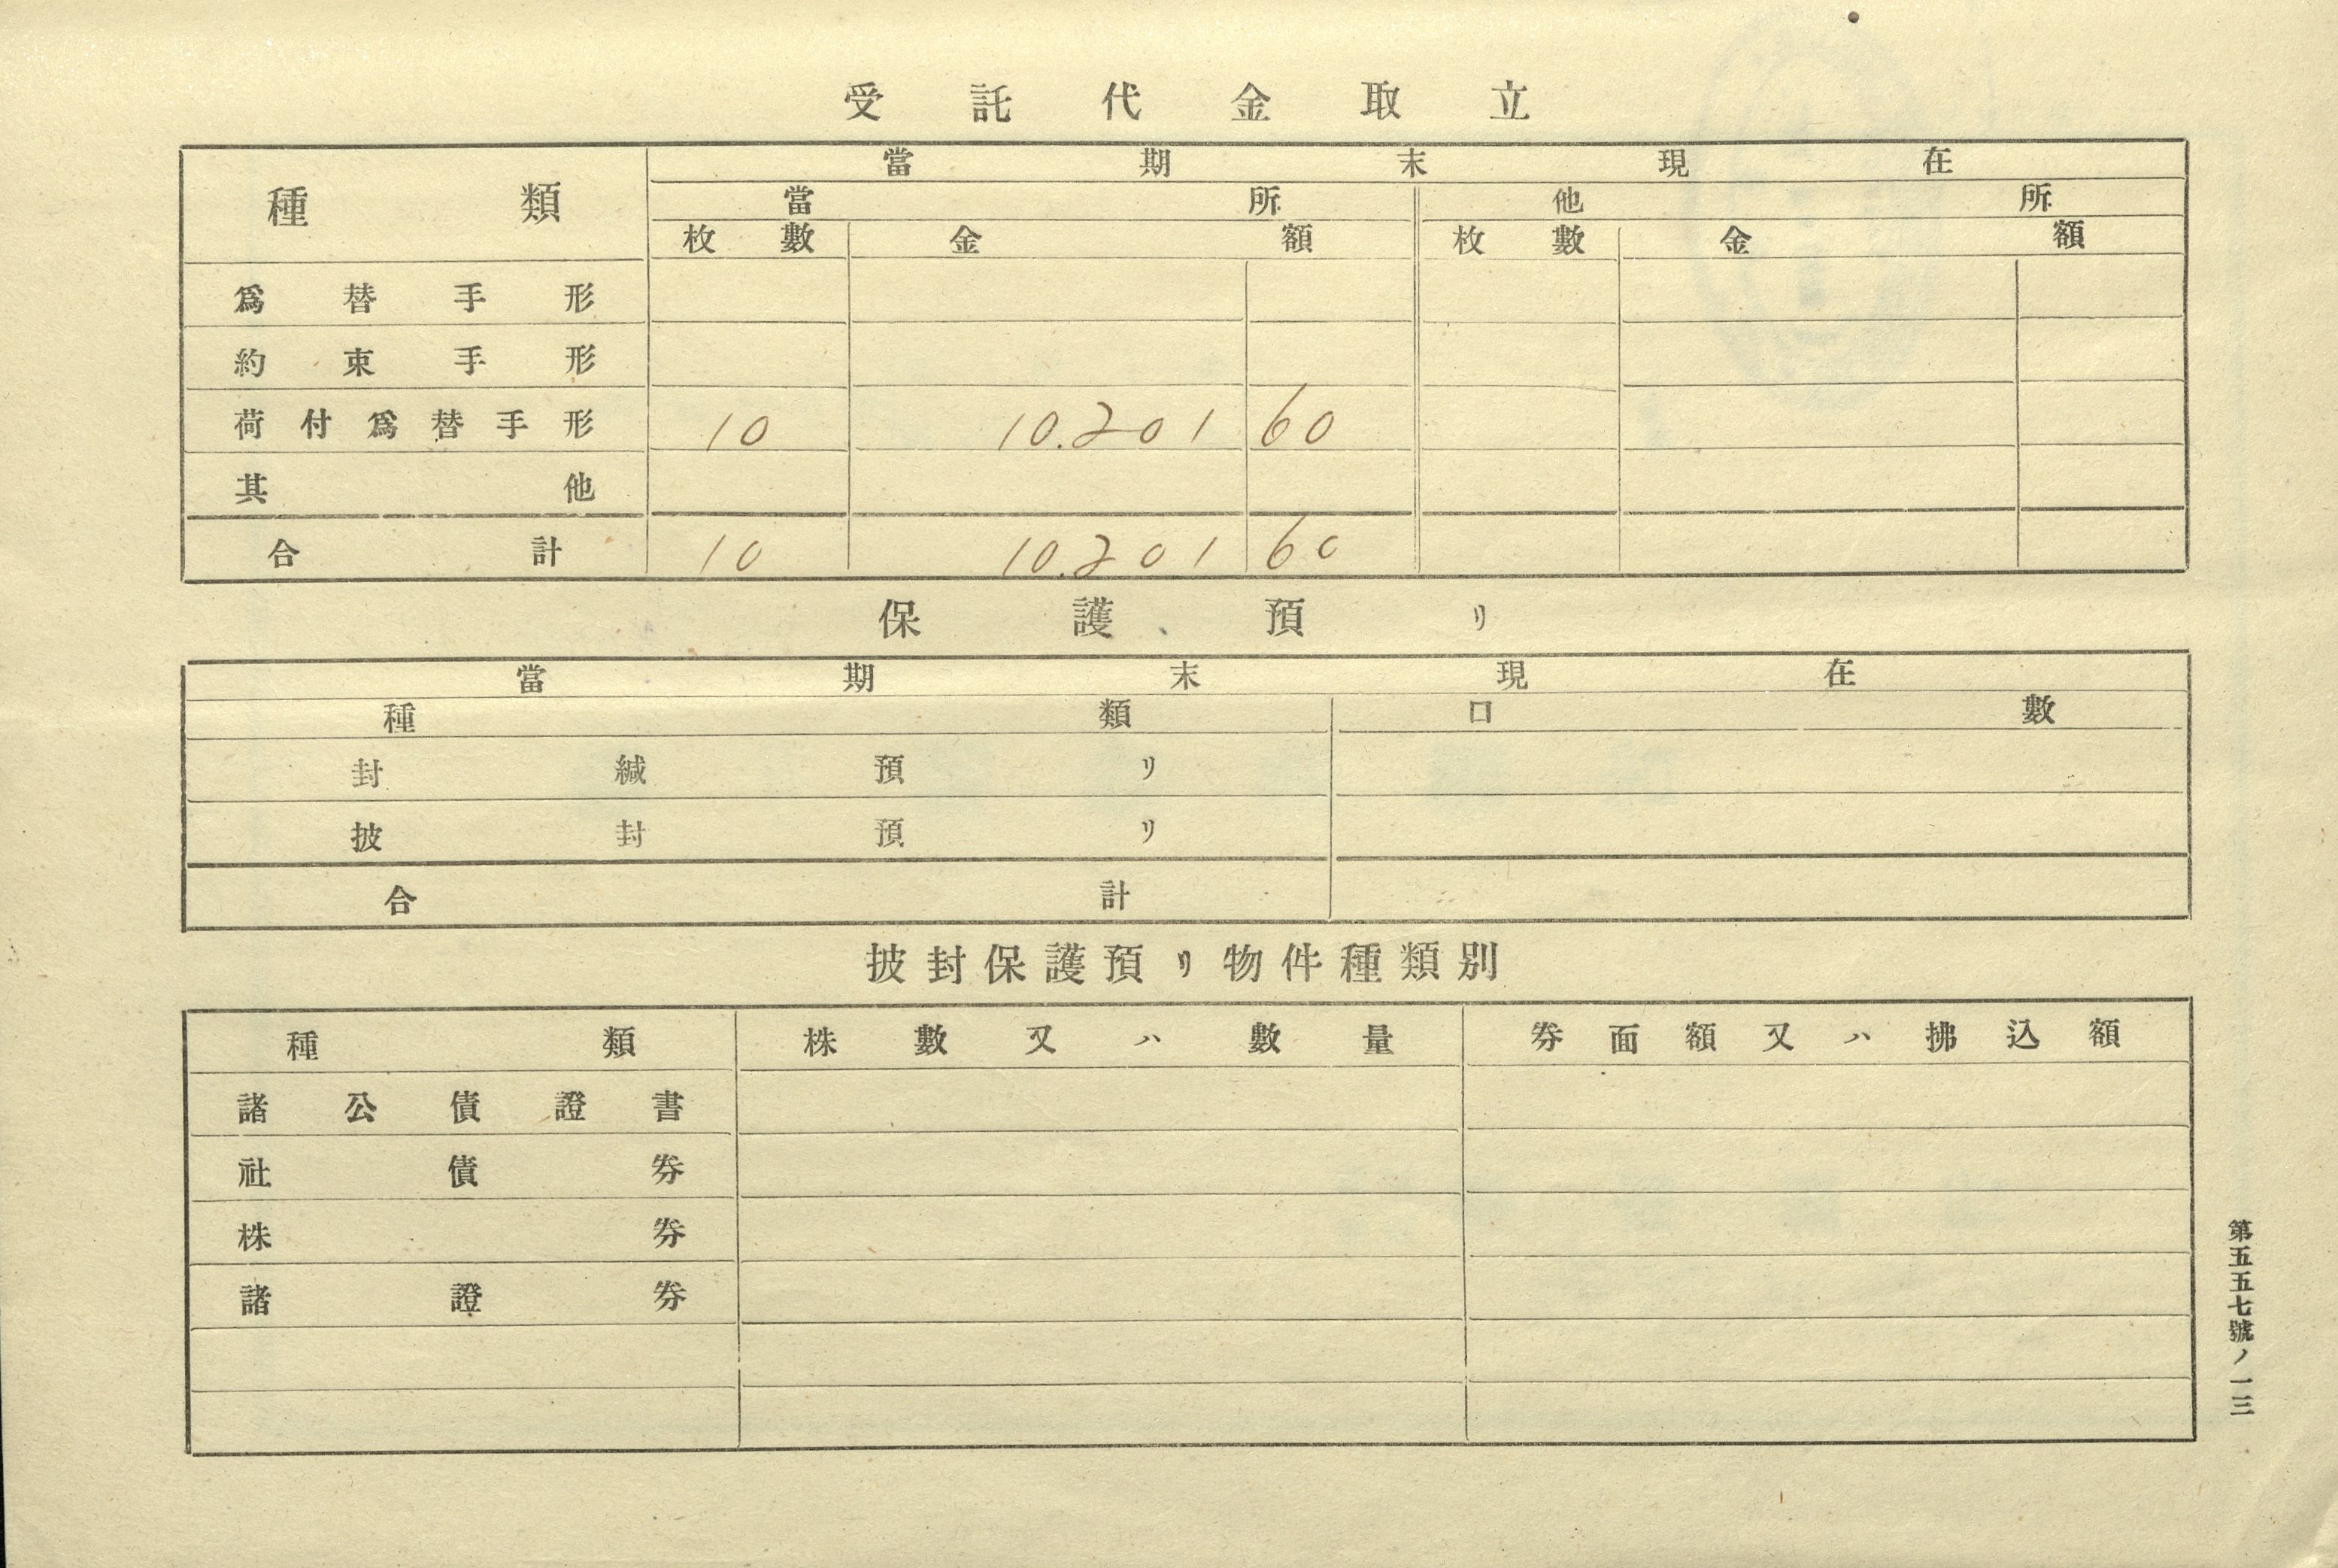 受託代金取立
種類 當期末現在
當所 他所
枚數 金額 枚數 金額
爲替手形
約束手形
荷付爲替手形 10 10.201 60
其他
合計 10 10.201 60
保護預リ
當期末現在
種類 口數
封緘預リ
披封預リ
合計
披封保護預リ物件種類別
種類 株數又ハ數量 券面額又ハ拂込額
諸公債證書
社債券
株券
諸證券
第五五七號ノ一三